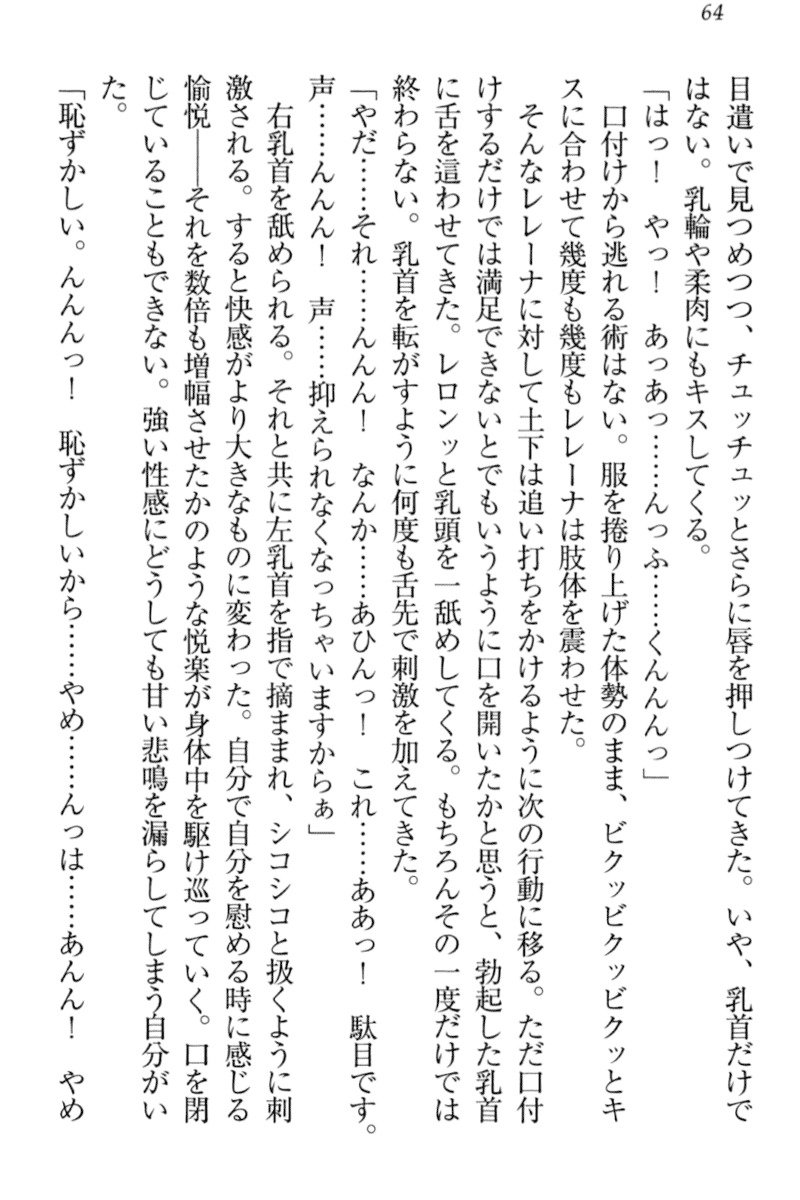 64
目遣いで見つめつつ、チュッチュッとさらに唇を押しつけてきた。いや、乳首だけで
はない。乳輪や柔肉にもキスしてくる。
「はっ！　やっ！　あっあっ……んっふ……くんんんっ」
　口付けから逃れる術はない。服を捲り上げた体勢のまま、ビクッビクッビクッとキ
スに合わせて幾度も幾度もレレーナは肢体を震わせた。
　そんなレレーナに対して土下は追い打ちをかけるように次の行動に移る。ただ口付
けするだけでは満足できないとでもいうように口を開いたかと思うと、勃起した乳首
に舌を這わせてきた。レロンッと乳頭を一舐めしてくる。もちろんその一度だけでは
終わらない。乳首を転がすように何度も舌先で刺激を加えてきた。
「やだ……それ……んんん！　なんか……あひんっ！　これ……ああっ！　駄目です。
声……んんん！　声……抑えられなくなっちゃいますからぁ」
　右乳首を舐められる。それと共に左乳首を指で摘ままれ、シコシコと扱くように刺
激される。すると快感がより大きなものに変わった。自分で自分を慰める時に感じる
愉悦――それを数倍も増幅させたかのような悦楽が身体中を駆け巡っていく。口を閉
じていることもできない。強い性感にどうしても甘い悲鳴を漏らしてしまう自分がい
た。
「恥ずかしい。んんんっ！　恥ずかしいから……やめ……んっは……あんん！　やめ